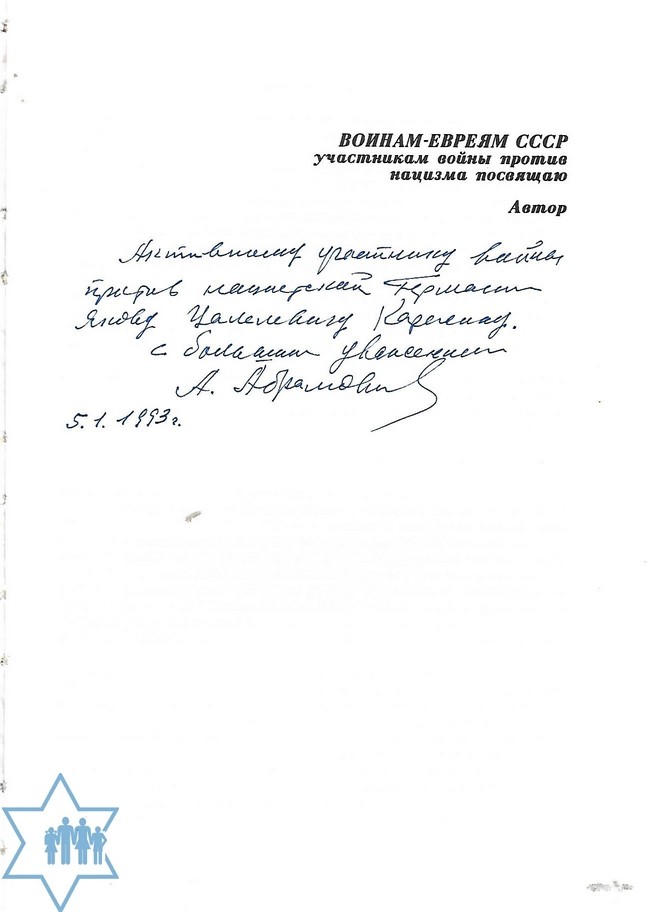 ВОИНАМ-ЕВРЕЯМ СССР
участникам войны против
нацизма посвящаю
Автор
Активному участнику войны
против нацистской Германии
Якову Цалелевичу
с большим уважением
А. Абрамович
5.1.1993г.